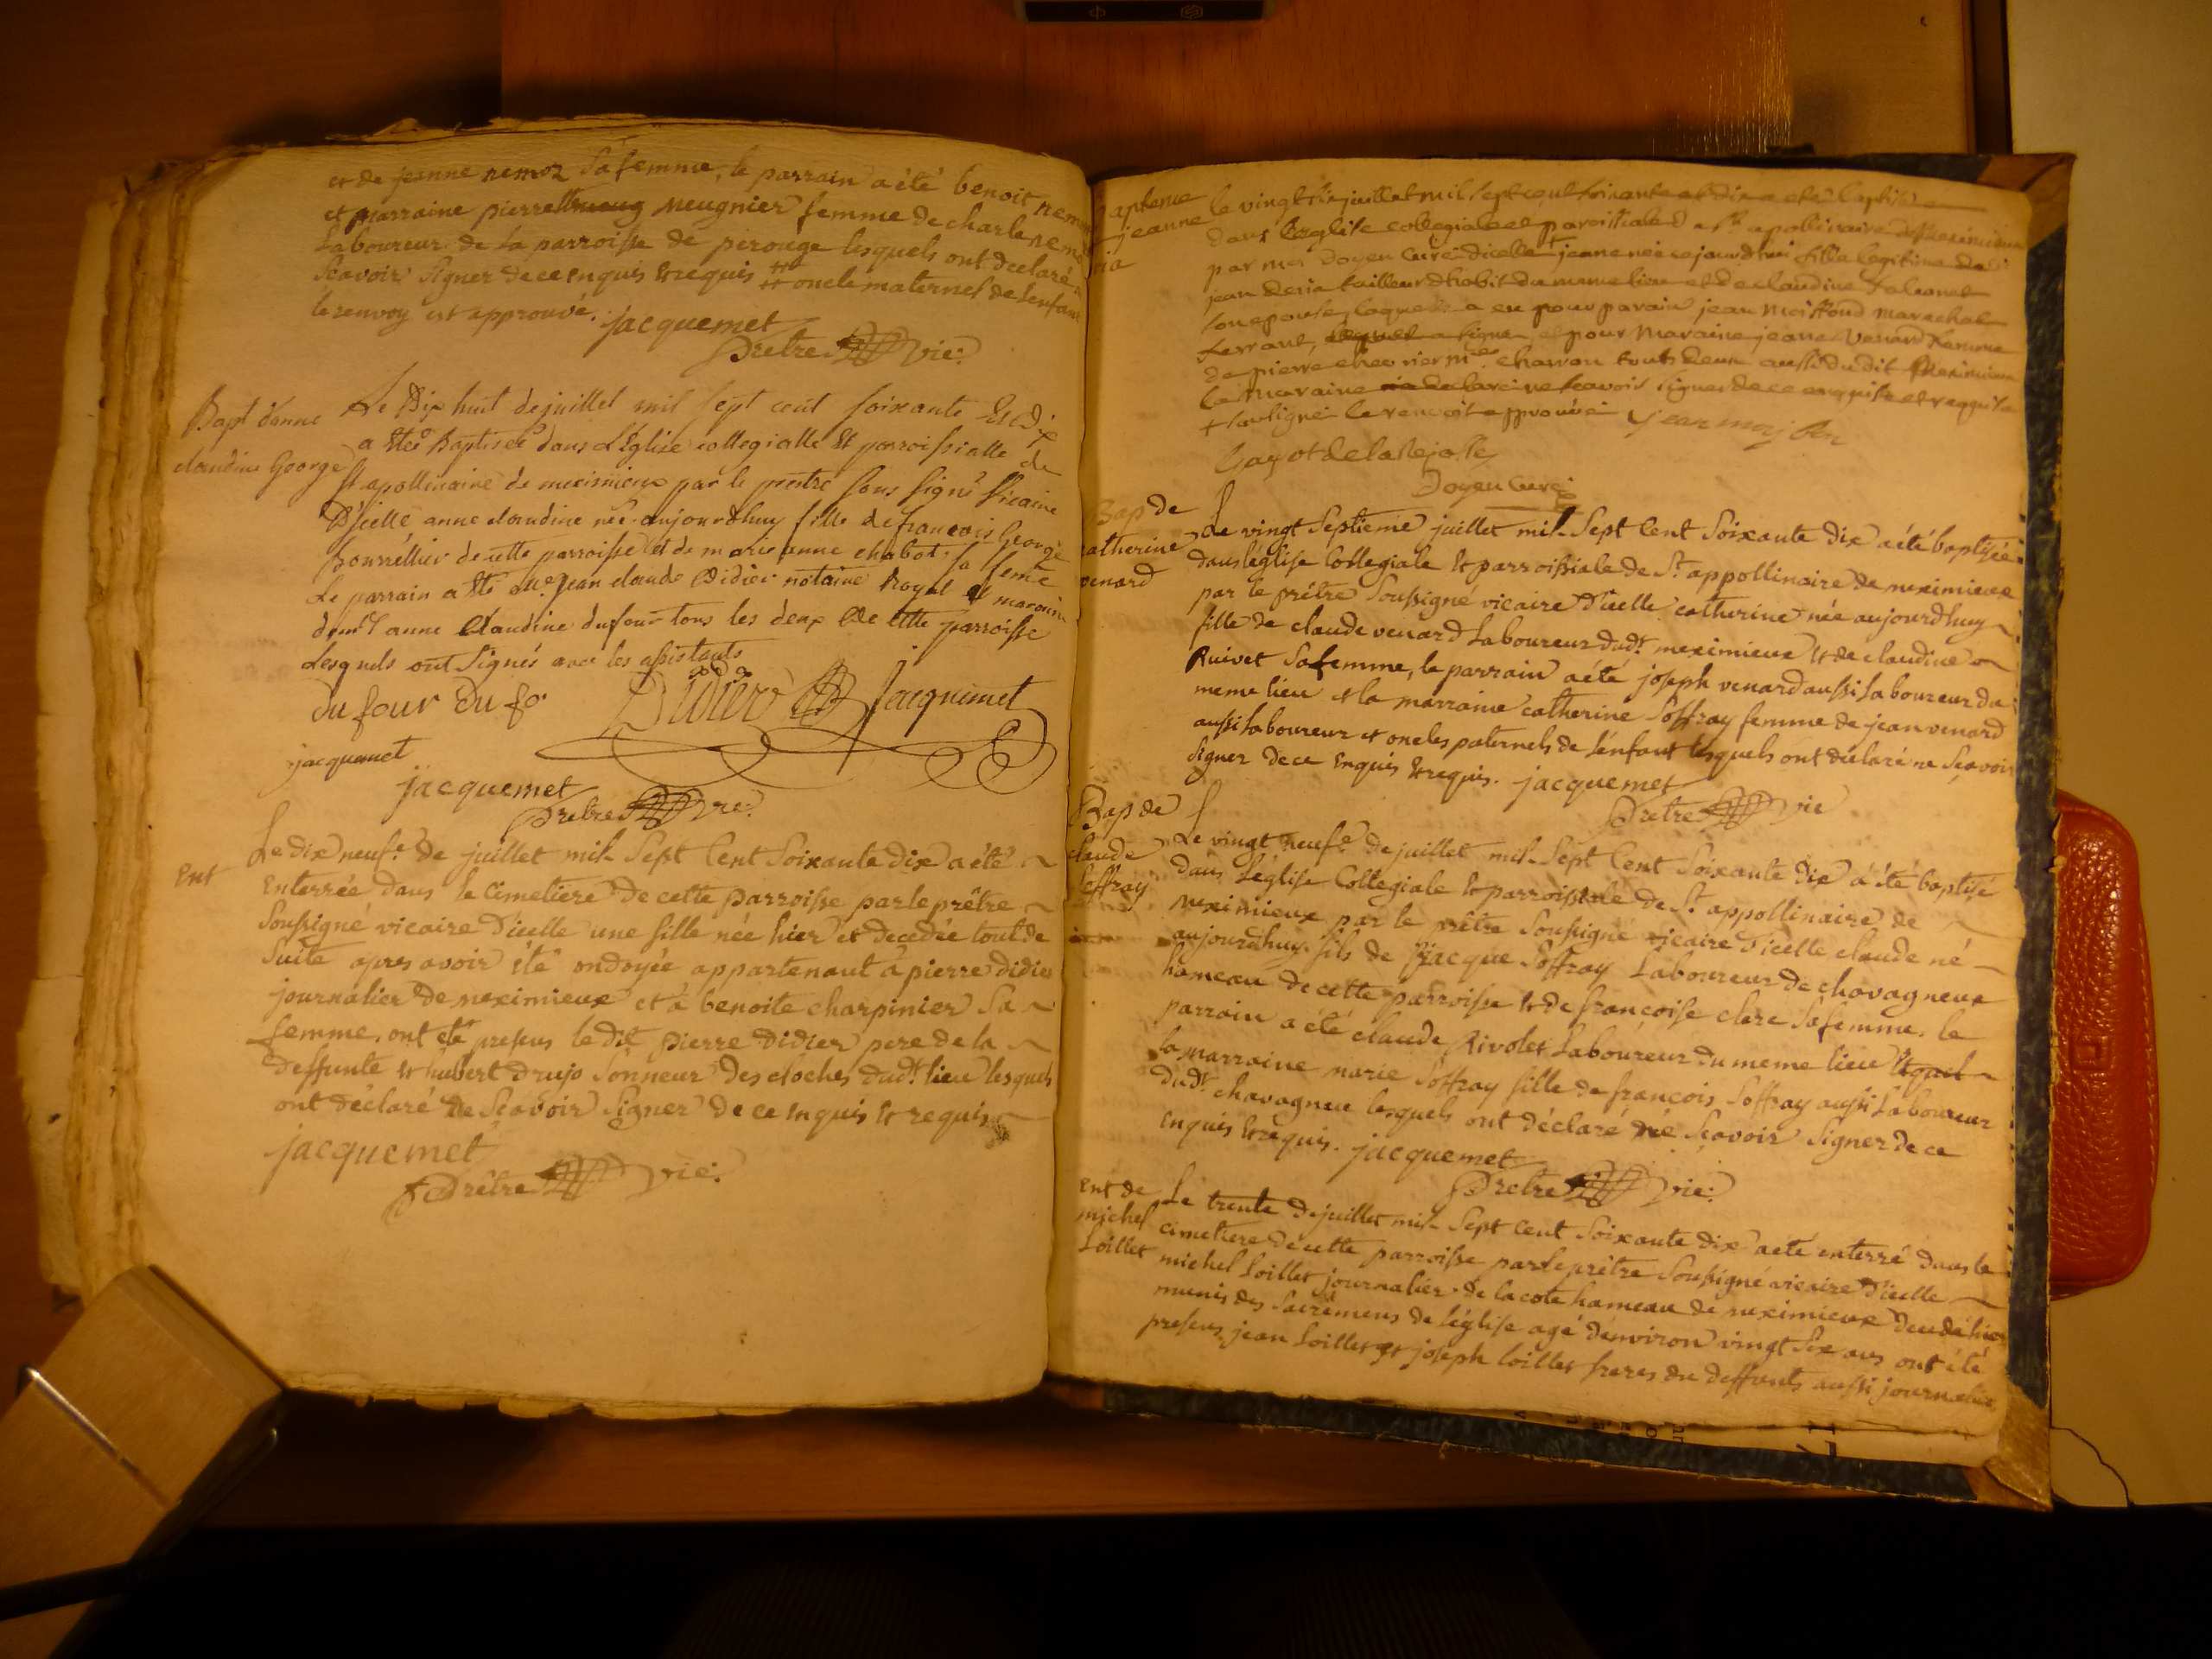 et de jeanne remoz sa femme, le parrain a été benoit
et marraine pierrette meugnier femme de charle
Laboureur de la parroisse de perouge lesquels ont declaré
Scavoir Signer de ce enquis & requis # oncle maternel de lenfant
le renvoy est approuvé. jacquemet
Pretre vic:
Bapt d'anne
claudine George
Le Dix huit de juillet mil sept cent soixante Et Dix
a Eteé Baptiseé dans L'Eglise collegialle Et parroissialle de
St apollinaire de meximieux par le prêtre sous signé vicaire
D'icelle anne claudine neé aujourdhuy fille de françois George
bourrellier de cette parroisse et de marie anne chabot sa feme
Le parrain a Eté Mr. Jean claude Didier notaire Royal et maraine
demlle anne Claudine dufour tous les deux De cette parroisse
Lesquels ont Signés avec les assistants
du four Du fo Didier Jacquemet
jacquemet
jacquemet
Pretre vic:
Ent
Le dix neufe. de juillet mil Sept Cent Soixante dix a été
Enterrée dans le Cimetiere de cette parroisse par le prêtre
Soussigné vicaire D'icelle une fille née hier et decedée tout de
Suite apres avoir été ondoyée appartenant à pierre didier
journalier de meximieux et à benoite charpinier Sa
femme, ont eté presens le dit pierre Didier pere de la
deffunte & hubert Drujo Sonneur des cloches dudt. lieu lesquels
ont déclaré ne Scavoir Signer de ce enquis & requis
jacquemet
Prêtre vic:
jeanne
le vingt six juillet mil sept cent soixante et dix a été baptisé
dans leglise collegiale et paroissiale de St. apollinaire de Meximieux
par moi Doyen Curé dicelle + jeanne née cejourdhui fille legitime de
jean deria tailleur dhabit du meme lieu et de claudine
son epouse, laquelle a eu pour parain jean Marechal
ferrant, et pour Maraine jeane Venard femme
de pierre charon touts deux aussi du dit Meximieux
la Maraine declaré ne scavoir signer de ce enquise et requise
+ soussigné le renvoi approuvé
Doyen curé
Bap de
catherine
venard
Le vingt Septieme juillet mil Sept Cent Soixante dix a été baptisée
dans leglise Collegiale & parroissiale de St. appollinaire de meximieux
par le prêtre Soussigné vicaire D'icelle catherine née aujourdhuy
fille de claude venard Laboureur dudt. meximieux & de claudine
Ruivet Sa femme, le parrain a été joseph venard aussi Laboureur du
meme lieu et la marraine catherine Soffray femme de jean venard
aussi Laboureur et oncles paternels de l'enfant lesquels ont déclaré ne Scavoir
Signer de ce Enquis & requis. jacquemet
Pretre vic
Bap de
claude
Soffray
Le vingt neufe. de juillet mil Sept Cent Soixante dix a été baptisé
dans L'église Collegiale & parroissiale de St. appollinaire de
meximieux par le prêtre Soussigné vicaire D'icelle claude né
aujourdhuy fils de jacque Soffray Laboureur de chavagneux
hameau de cette parroisse & de françoise clerc Sa femme. le
parrain a été claude Rivolet Laboureur du meme lieu
la marraine marie Soffray fille de francois Soffray aussi Laboureur
dudt. chavagneux lesquels ont déclaré né Scavoir Signer de ce
enquis & requis. jacquemet
Pretre vic:
Ent de
michel
Loillet
Le trente de juillet mil Sept Cent Soixante dix a eté enterré dans le
cimetiere de cette parroisse par le prêtre Soussigné vicaire D'icelle
michel Loillet journalier de la cote hameau de meximieux decedé hier
munis des Sacremens de l'église agé d'environ vingt Six ans ont été
presens jean Loillet & joseph loillet freres du deffunts aussi journalier